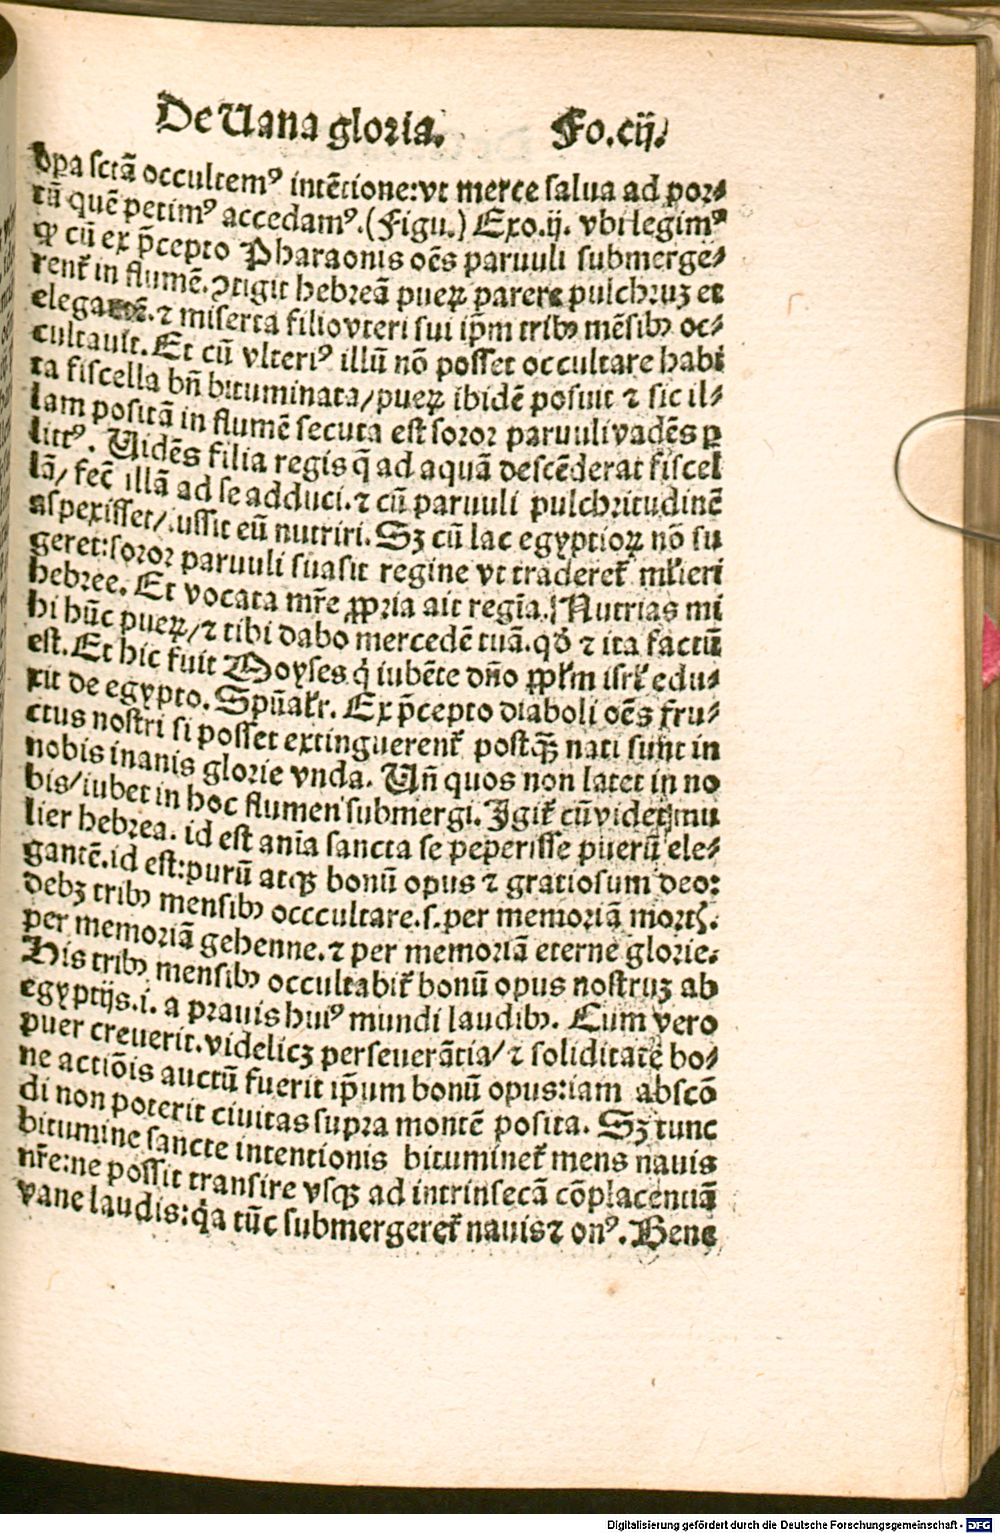 De Uana gloria. Fo.cij.
opa sctã occultemꝰ intẽtione:vt merce salua ad por⸗
tũ quẽ petimꝰ accedamꝰ.(Figu.) Exo.ij. vbi legimꝰ
ꝙ cũ ex p̄cepto Pharaonis oẽs paruuli submerge⸗
rent᷑ in flumẽ.ꝯtigit hebreã pueꝝ parere pulchruꝫ et
elegantẽ.⁊ miserta filio vteri sui ip̃m tribꝰ mẽsibꝰ oc⸗
cultauit. Et cũ vlteriꝰ illũ nõ posset occultare habi
ta fiscella bñ bituminata/pueꝝ ibidẽ posuit ⁊ sic il⸗
lam positã in flumẽ secuta est soror paruuli vadẽs ꝑ
littꝰ. Uidẽs filia regis q̃ ad aquã descẽderat fiscel
lã/ fec̃ illã ad se adduci.⁊ cũ paruuli pulchritudinẽ
aspexisset/iussit eũ nutriri. Sꝫ cũ lac egyptioꝝ nõ su
geret:soror paruuli suasit regine vt traderet᷑ mĺieri
hebree. Et vocata mr̃e ꝓpria ait regĩa. Nutrias mi
hi hũc pueꝝ/⁊ tibi dabo mercedẽ tuã.qđ ⁊ ita factũ
est.Et hic fuit Moyses q̇ iubẽte dño ppĺm isrĺ edu⸗
xit de egypto. Spũaĺr. Ex p̄cepto diaboli oẽs fru⸗
ctus nostri si posset extinguerent᷑ postꝙ̃ nati sunt in
nobis inanis glorie vnda. Uñ quos non latet in no
bis/iubet in hoc flumen submergi. Igit᷑ cũ videt mu
lier hebrea. id est anĩa sancta se peperisse puerũ ele⸗
gantẽ.id est:purũ atqꝫ bonũ opus ⁊ gratiosum deo:
debꝫ tribꝰ mensibꝰ occcultare.s.per memoriã mortꝭ.
per memoriã gehenne.⁊ per memoriã eterne glorie.
His tribꝰ mensibꝰ occultabit᷑ bonũ opus nostruꝫ ab
egyptijs.i. a prauis huiꝰ mundi laudibꝰ. Cum vero
puer creuerit.videlicꝫ perseuerãtia/⁊ soliditate bo⸗
ne actiõis auctũ fuerit ip̃um bonũ opus:iam abscõ
di non poterit ciuitas supra montẽ posita. Sꝫ tunc
bitumine sancte intentionis bituminet᷑ mens nauis
nr̃e:ne possit transire vsqꝫ ad intrinsecã cõplacentiã
vane laudis:q̇a tũc submergeret᷑ nauis ⁊ onꝰ. Bene
Digitalisierung gefördert durch die Deutsche Forschungsgemeinschaft - DFG